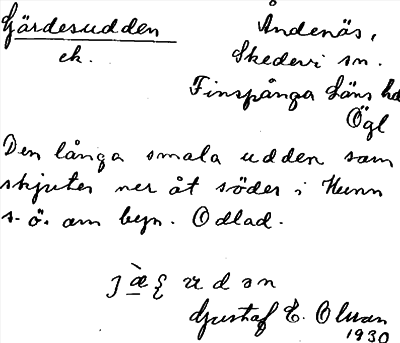 Gärdesudden Åndenäs,
ek. Skedevi sn.
Finspånga läns hd
Ögl
Den långa smala udden som
skjuter ner åt söder i Hunn
s. ö. om byn. Odlad.
Gustaf E. Olsson
1930